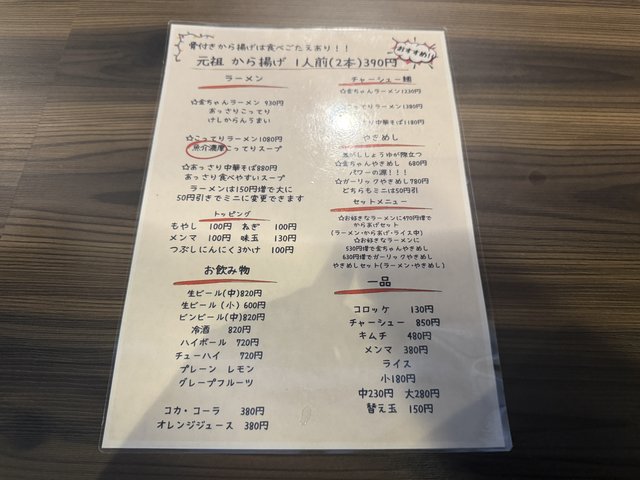 骨付きから揚げは食べごたえあり！！
元祖 から揚げ 1人前(2本)390円
おすすめ!!
ラーメン
☆金ちゃんラーメン 930円
あっさりこってり
けしからんうまい
☆こってりラーメン1080円
魚介濃厚こってりスープ
☆あっさり中華そば880円
あっさり食べやすいスープ
ラーメンは150円増で大に
50円引きでミニに変更できます
トッピング
もやし 100円 ねぎ 100円
メンマ 100円 味玉 130円
つぶしにんにく3かけ 100円
お飲み物
生ビール(中)820円
生ビール(小)600円
ビンビール(中)820円
冷酒 820円
ハイボール 720円
チューハイ 720円
プレーン レモン
グレープフルーツ
コカ・コーラ 380円
オレンジジュース 380円
チャーシュー麺
☆金ちゃんラーメン1230円
こってりラーメン1380円
さり中華そば1180円
やきめし
焦がししょうゆが際立つ
☆金ちゃんやきめし 680円
パワーの源！！！
☆ガーリックやきめし780円
どちらもミニは50円引
セットメニュー
☆お好きなラーメンに470円増で
からあげセット
(ラーメン・からあげ・ライス中)
☆お好きなラーメンに
530円増で金ちゃんやきめし
630円増でガーリックやきめし
やきめしセット(ラーメン・やきめし)
一品
コロッケ 130円
チャーシュー 850円
キムチ 480円
メンマ 380円
ライス
小180円
中230円 大280円
替え玉 150円